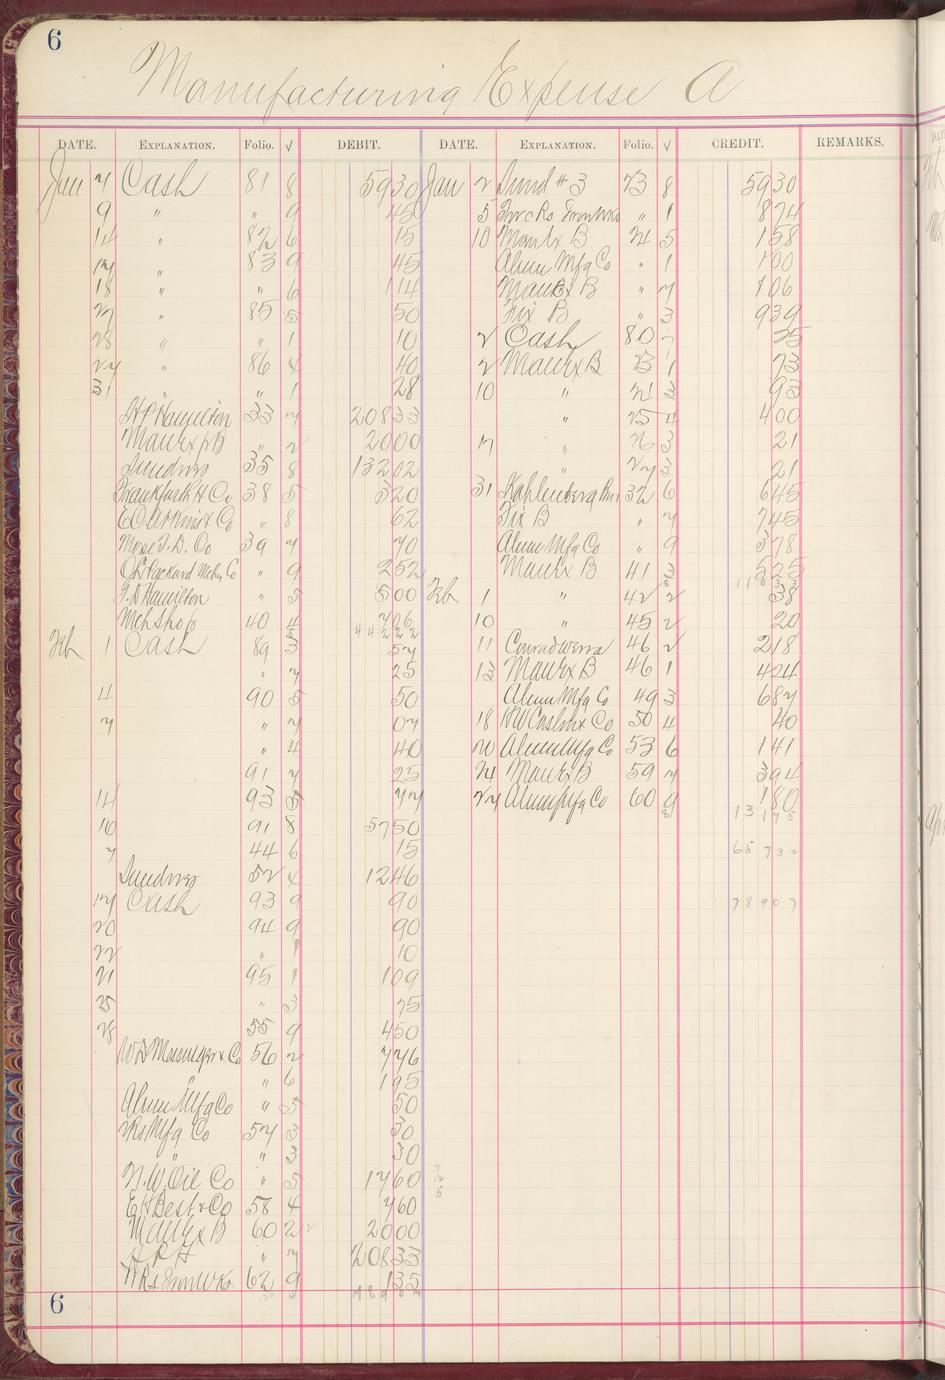 6
Manufacturing Expense A
DATE. EXPLANATION. Folio. √ DEBIT. DATE. EXPLANATION. Folio. √ CREDIT. REMARKS.
Jan 7 Cash 81 8 5930 Jan 2 Sund #3 73 8 5930
9 " " 9 45 5 Two Rs Iron Wks " 1 874
14 " 82 6 15 10 Manfx B 74 5 158
17 " 83 9 45 Alum Mfg Co " 1 100
18 " " 6 114 Manfx B " 7 106
27 " 85 5 50 Fix B " 3 939
28 " " 1 10 2 Cash 80 7 35
27 " 86 4 40 2 Manfx B 73 1 73
31 " " 1 28 10 " 74 3 93
H P Hamilton 33 7 20833 " 75 4 400
Manfx B " 2 2000 17 " 76 3 21
Sundries 35 8 13202 " 77 3 21
Frankfurth H Co 38 5 320 31 Kahlenberg Bros 32 6 645
E C Atkins & Co " 8 62 Fix B " 7 745
Morse T. D. Co 39 7 70 Alum Mfg Co " 9 378
O L Packard Mchy Co " 9 252 Manfx B 41 3 525
11833
H P Hamilton " 5 500 Feb 1 " 42 2 38
Mch Shop 40 4 706 10 " 45 2 20
44222
Feb 1 Cash 89 3 57 11 Conrad Werra 46 2 218
" 7 25 13 Manfx B 46 1 424
4 90 5 50 Alum Mfg Co 49 3 687
7 " 7 07 18 H W Caslon & Co 50 4 40
" 4 40 20 Alum Mfg Co 53 6 141
91 7 25 24 Manfx B 59 7 394
14 93 5 77 27 Alum Mfg Co 60 9 180
13175
16 91 8 5750
7 44 6 15 65732
Sundries 52 4 1246
17 Cash 93 9 90 78907
20 94 9 90
22 " 1 10
21 95 1 109
25 " 3 75
28 55 9 450
56 2 776
" " 6 195
Alum Mfg Co " 5 50
Mfg Co 57 3 30
" " 3 30
N. W. Oil Co " 5 1760
E H Best & Co 58 4 760
Manfx B 60 2 2000
H P H " 7 20833
T Rs Iron Wks 62 9 135
6